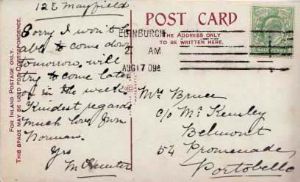 12 E Mayfield
Sorry I won't
able to come down
tomorrow, will
try to come later
in the week
Kindest regards
Much love from
Norman.
Yrs
FOR INLAND POSTAGE ONLY,
THIS SPACE MAY BE USED
POST CARD
THE ADDRESS ONLY
TO BE WRITTEN HERE.
EDINBURGH
AM
AUG 17 09
Mrs Bruce
c/o Mrs
Belmont
54 Promenade
Portobello